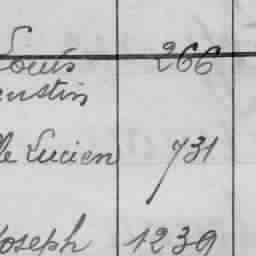 Louis 266
ustin
le Lucien 731
Joseph 1239